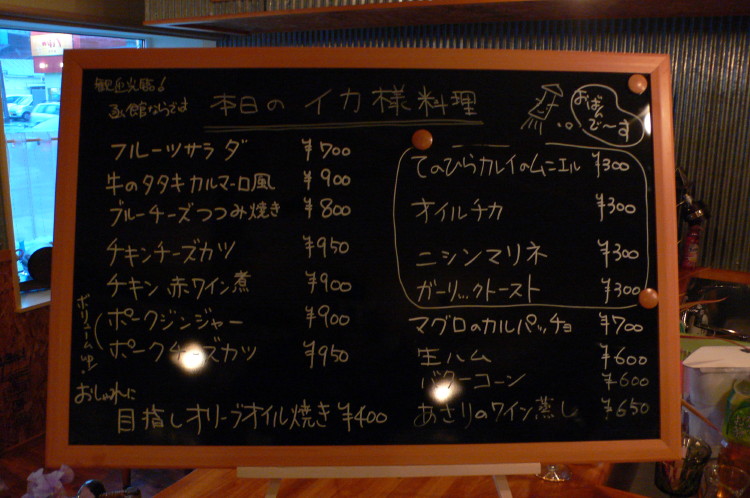 観光客!
函館ならでは
本日の イカ様料理
おばん
で〜す
フルーツサラダ ¥700
牛のタタキカルマーロ風 ¥900
ブルーチーズつつみ焼き ¥800
チキンチーズカツ ¥950
チキン赤ワイン煮 ¥900
ボリュームup!
ポークジンジャー ¥900
ポークチーズカツ ¥950
おしゃれに
目指しオリーブオイル焼き ¥400
てのひらカレイのムニエル ¥300
オイルチカ ¥300
ニシンマリネ ¥300
ガーリックトースト ¥300
マグロのカルパッチョ ¥700
生ハム ¥600
バターコーン ¥600
あさりのワイン蒸し ¥650